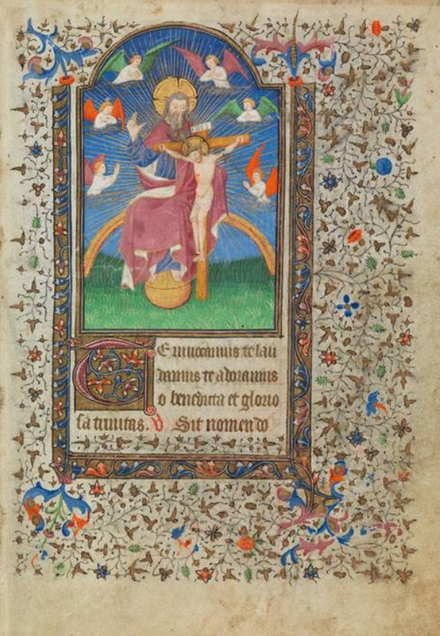 Te inuocamus te lau
damus te adoramus
o benedicta et glorio
sa trinitas. V Sit nomen do